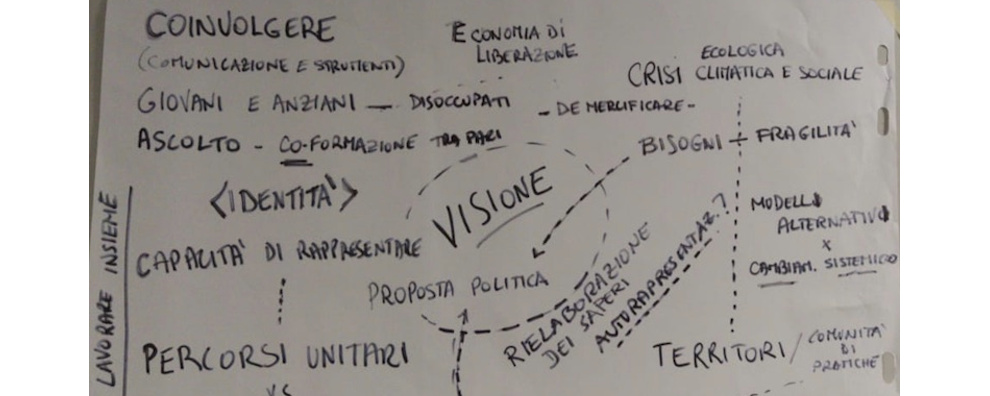 COINVOLGERE
(COMUNICAZIONE E STRUMENTI)
ECONOMIA DI
LIBERAZIONE
CRISI ECOLOGICA
CLIMATICA E SOCIALE
GIOVANI E ANZIANI — DISOCCUPATI
- DE MERCIFICARE -
ASCOLTO - CO-FORMAZIONE TRA PARI
BISOGNI + FRAGILITA'
<IDENTITA'>
VISIONE
MODELLO
ALTERNATIVO
x
CAMBIAM. SISTEMICO
LAVORARE INSIEME
CAPACITA' DI RAPPRESENTARE
PROPOSTA POLITICA
RIELABORAZIONE
DEI SAPERI
AUTORAPRESENTAZ.?
PERCORSI UNITARI
VS
TERRITORI / COMUNITA'
DI
PRATICHE